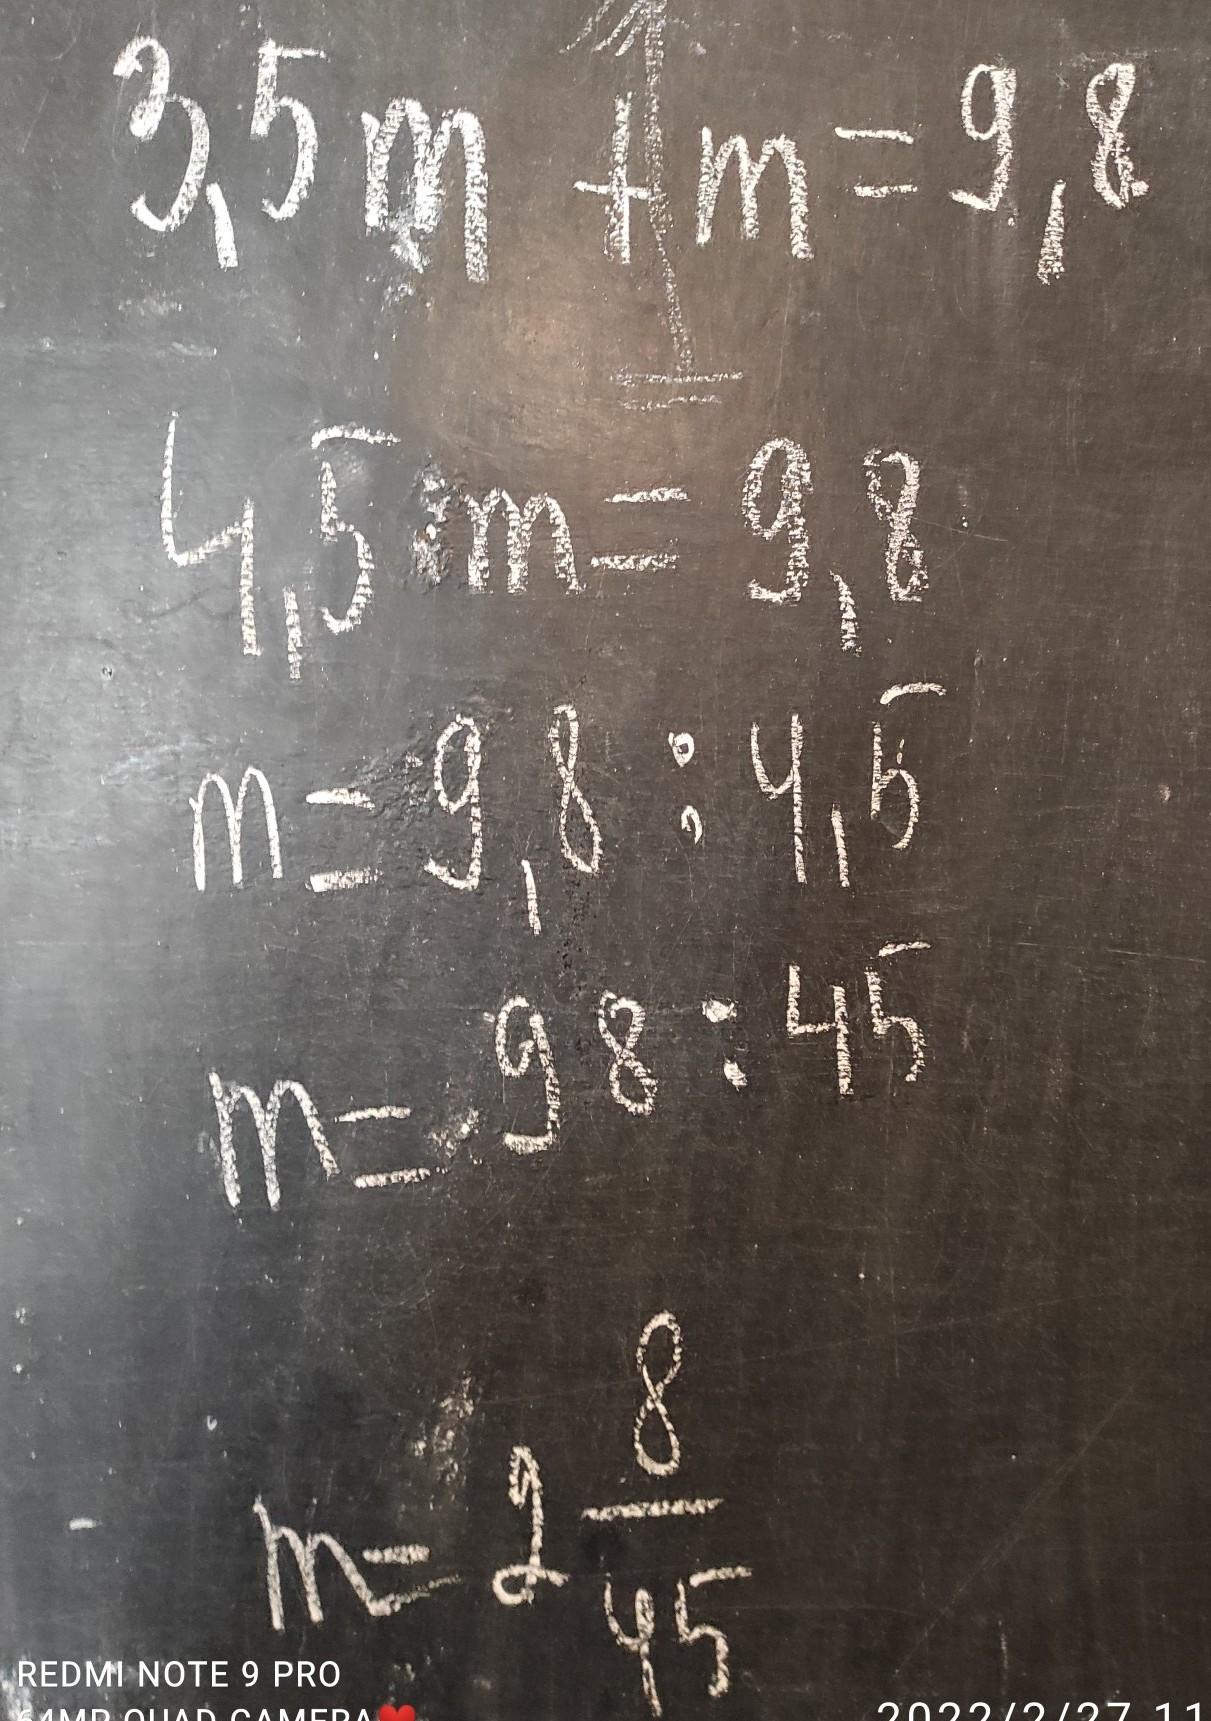 3,5m + m = 9,8
4,5 · m = 9,8
m = 9,8 : 4,5
m = 98 : 45
m = 2 8/45
REDMI NOTE 9 PRO
64MP QUAD CAMERA❤
2022/2/27 11